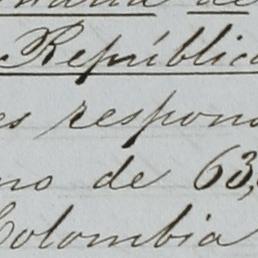 de
República
es respon
no de 63,
Colombia